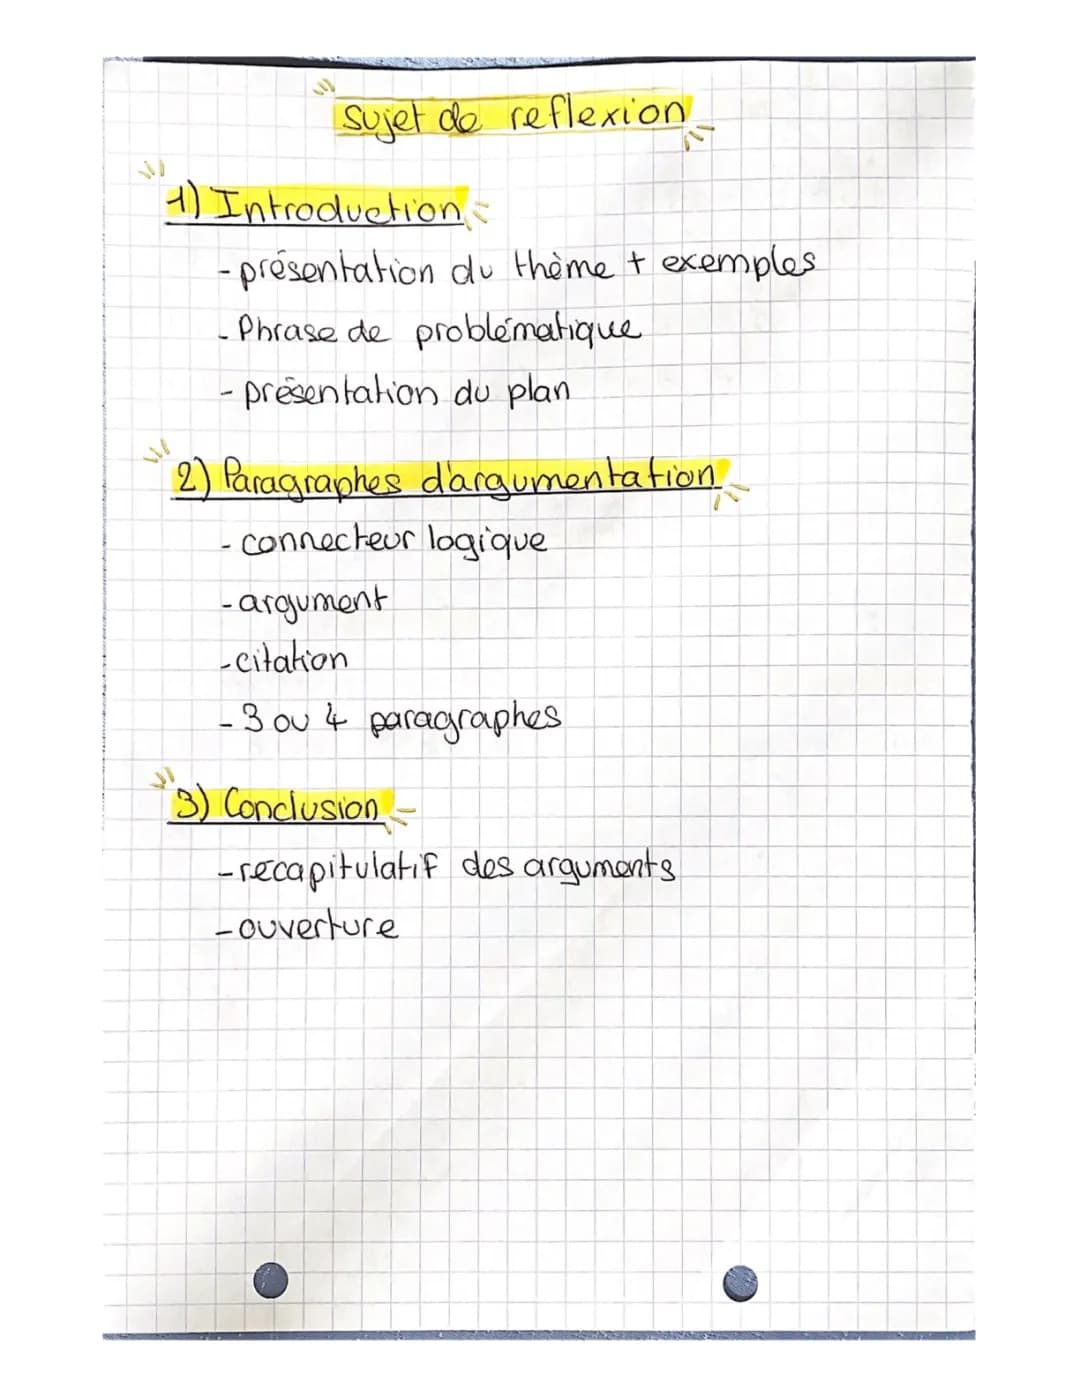 sujet de reflexion
1) Introduction
- présentation du thème + exemples
- Phrase de problématique
- présentation du plan
2) Paragraphes d'argumentation
- connecteur logique
- argument
- citation
- 3 ou 4 paragraphes
3) Conclusion
- récapitulatif des arguments
- ouverture